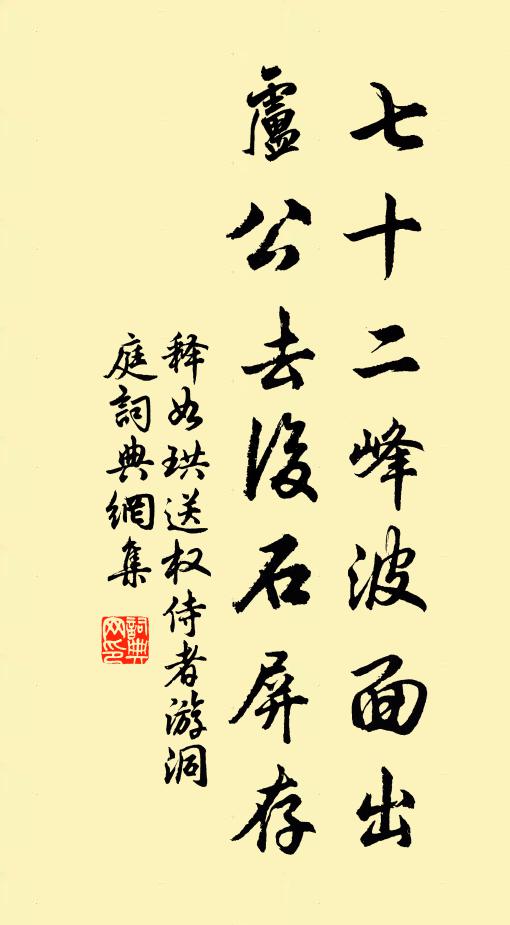 七十二峰波面出
盧公去後石屏存
释如珙送权侍者游洞
庭詞典網集
詞典
网印